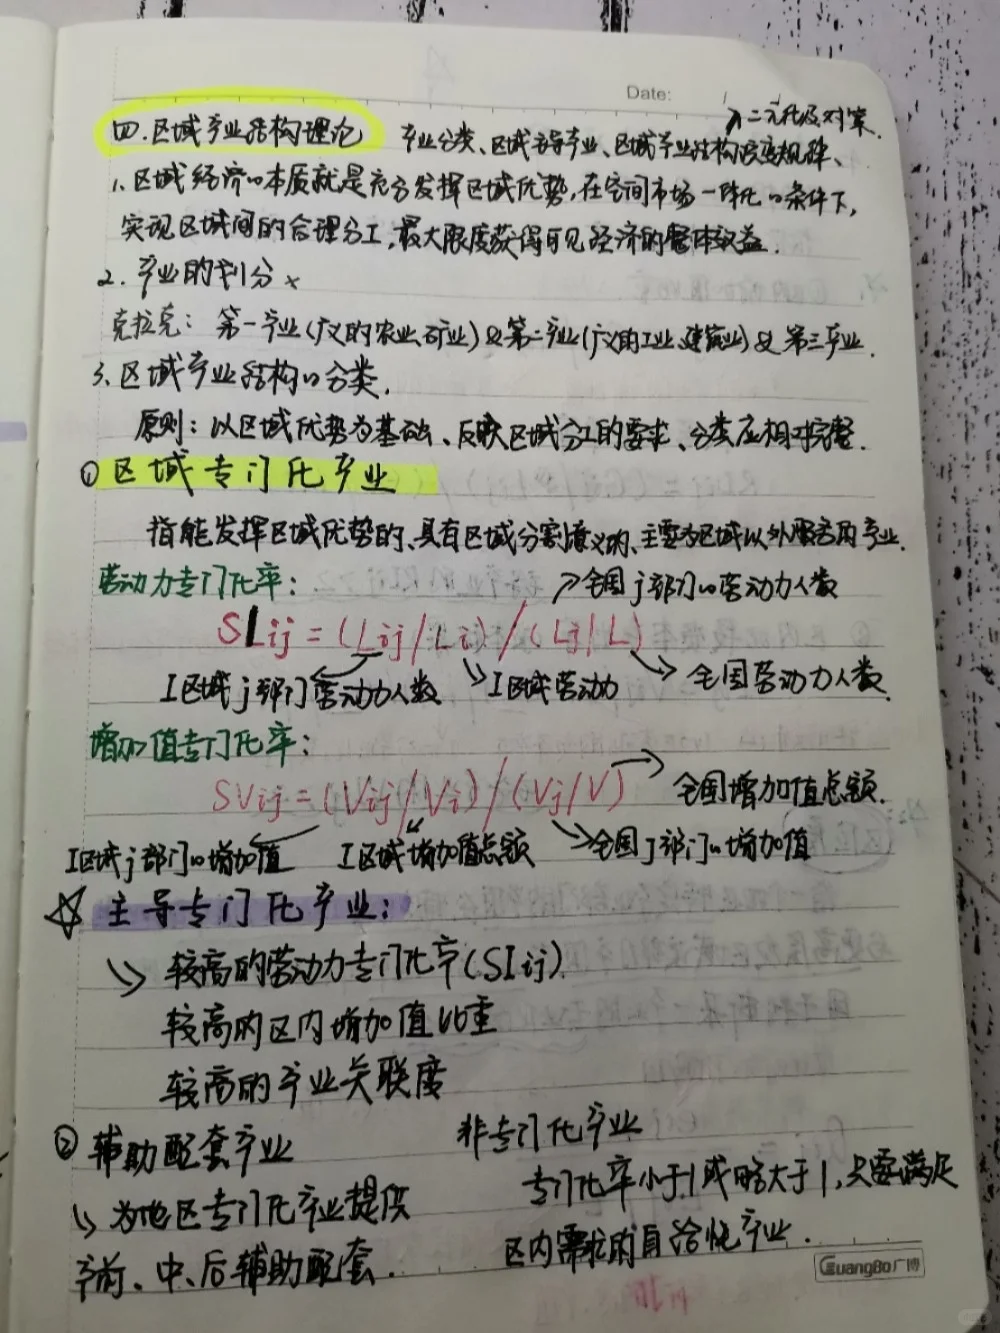 Date: / /
四.区域产业结构理论
→二元化及对策.
产业分类、区域主导产业、区域产业结构演变规律、
1.区域经济的本质就是充分发挥区域优势,在空间市场一体化的条件下,
实现区域间的合理分工,最大限度获得可见经济的整体效益.
2.产业的划分 ×
克拉克:第一产业(广义的农业,矿业)&第二产业(广义的工业,建筑业)&第三产业.
3.区域产业结构的分类.
原则:以区域优势为基础、反映区域分工的要求、分类应相对完整.
①区域专门化产业
指能发挥区域优势的、具有区域分割意义的、主要为区域以外服务的产业.
劳动力专门化率:
→全国j部门的劳动力人数
SLij=(Lij/Li)/(Lj/L)
I区域j部门劳动力人数
I区域劳动力
全国劳动力人数.
增加值专门化率:
SVij=(Vij/Vi)/(Vj/V)
全国增加值总额.
I区域j部门的增加值
I区域增加值总额
全国J部门的增加值
☆主导专门化产业:
较高的劳动力专门化率(SIij).
较高的区内增加值比重
较高的产业关联度
②辅助配套产业
↳为地区专门化产业提供
产前、中、后辅助配套.
非专门化产业
专门化率小于1或略大于1,只要满足
区内需求的自给性产业.
GuangBo广博